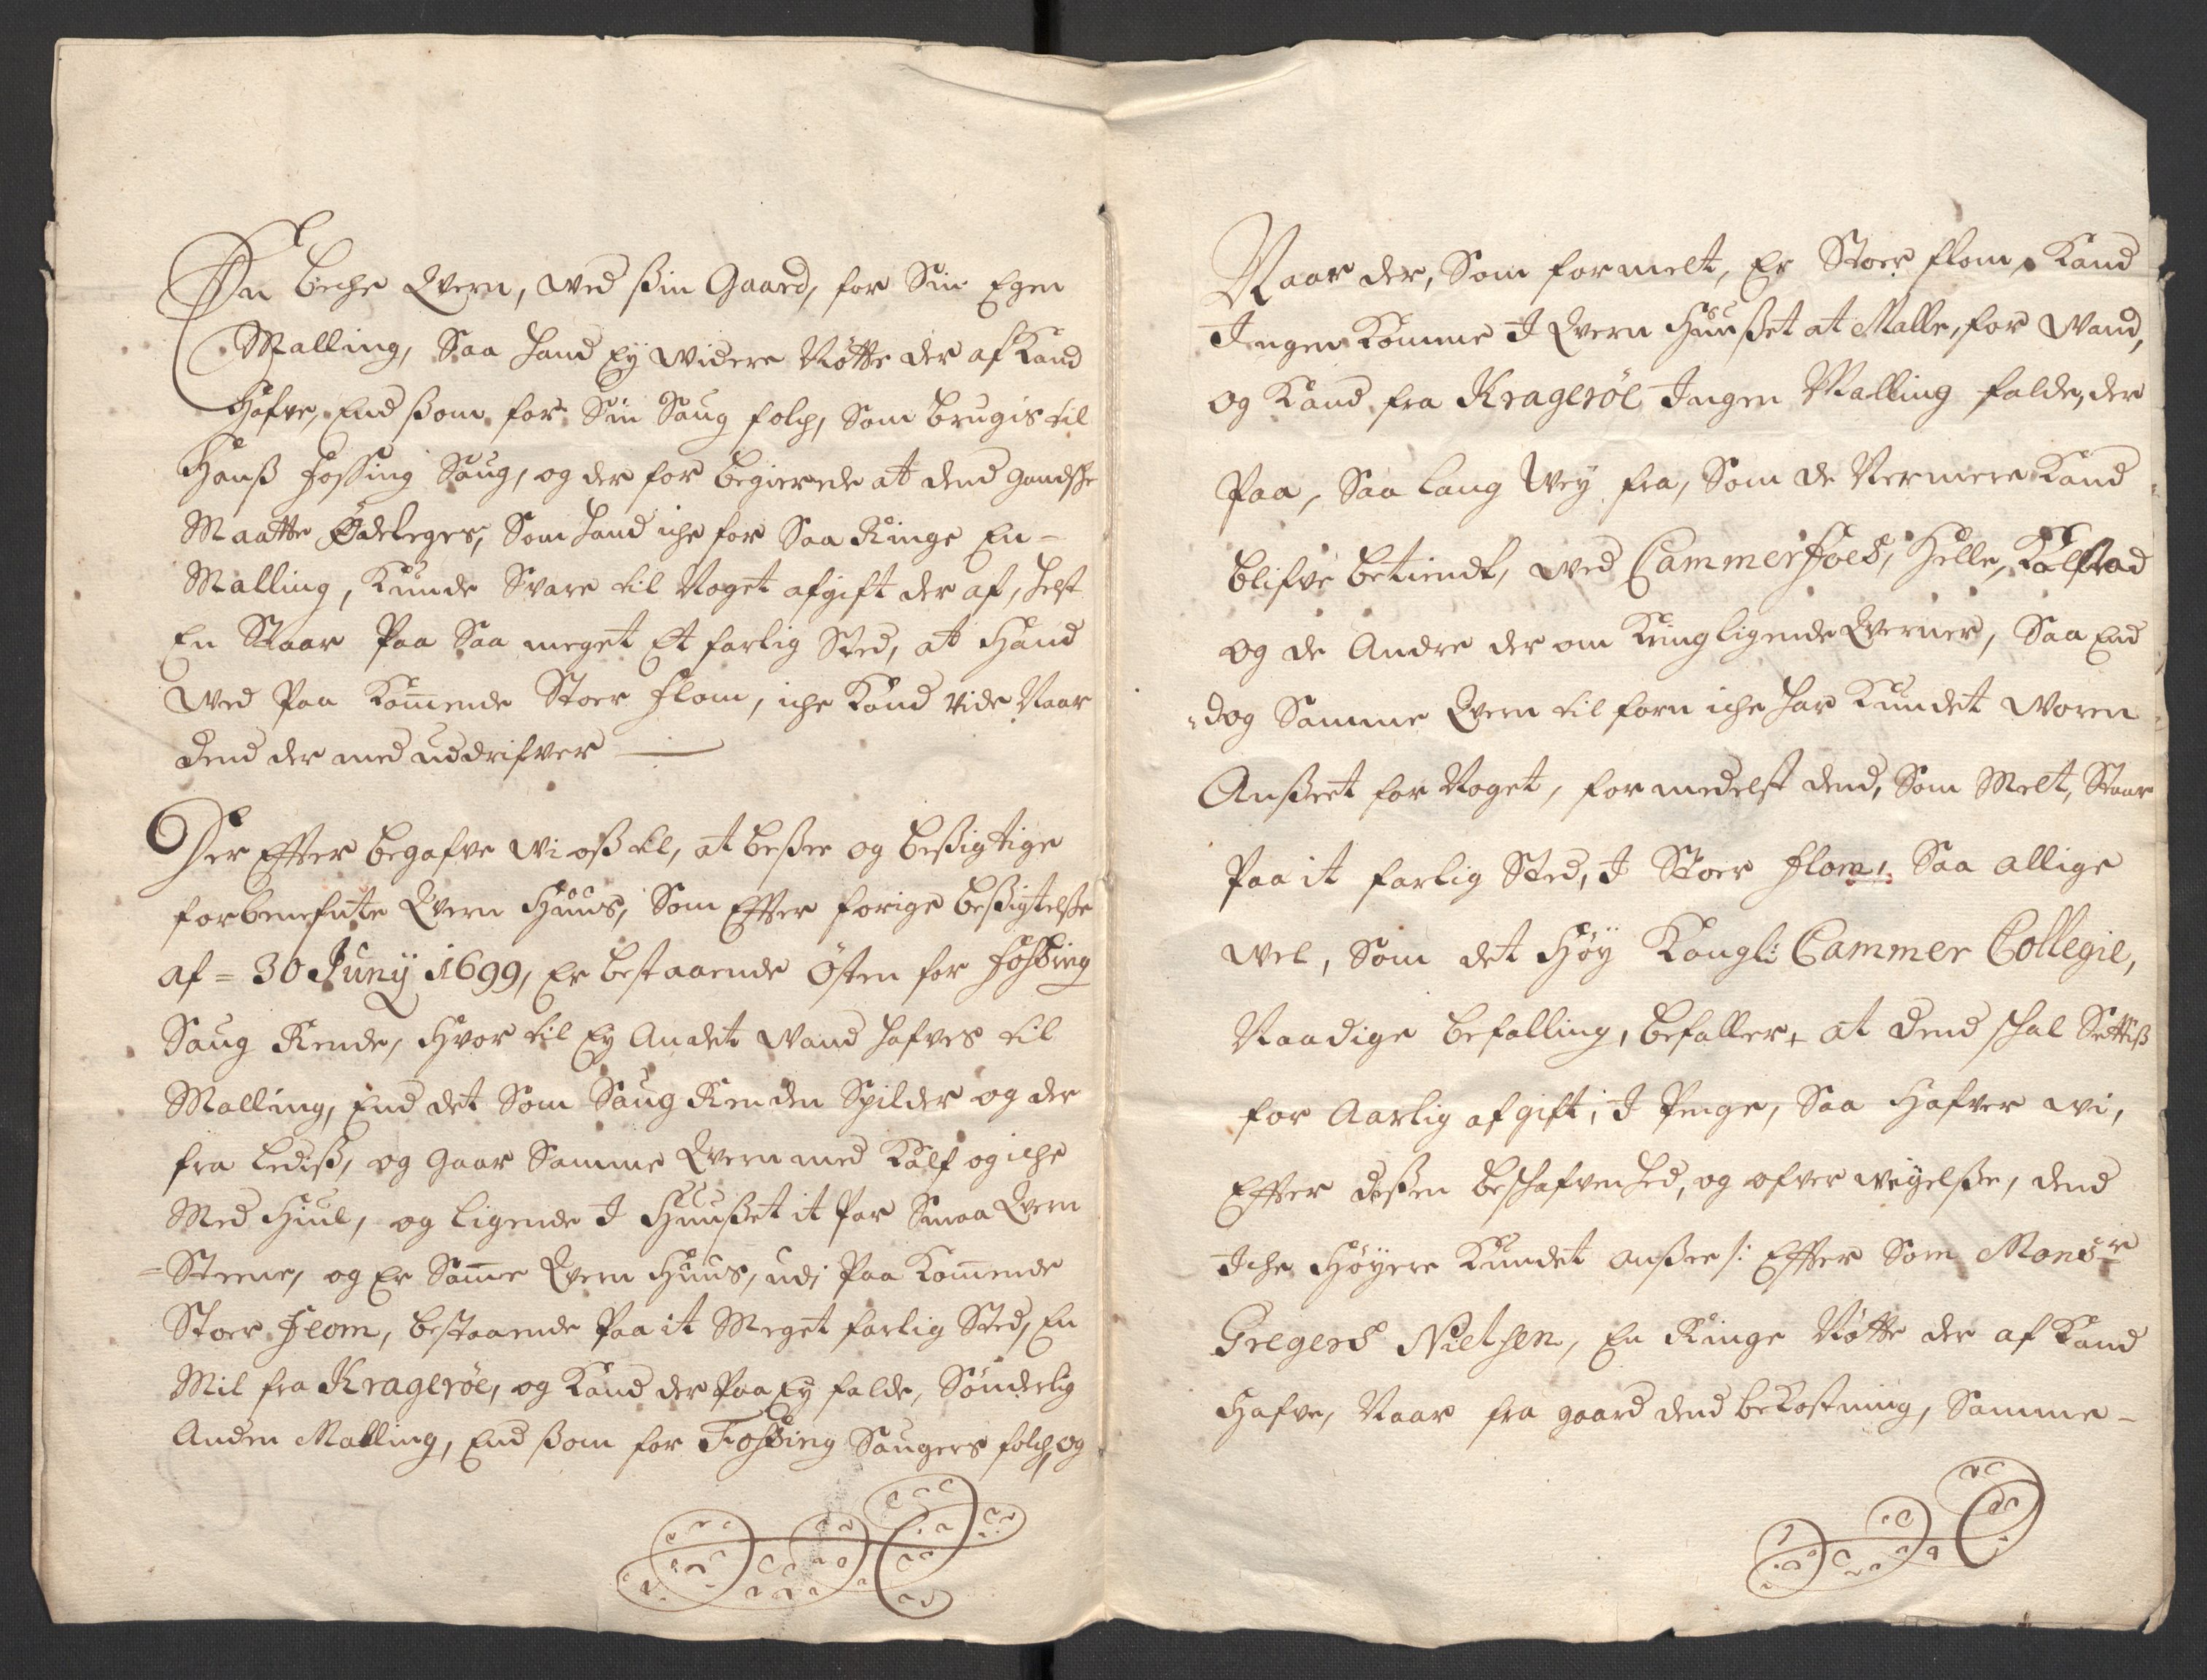 En beche Qvern, wed ßin Gaard, for Sin Egen
Malling, Saa hand Ey widere Nøtte der af Kand
Hafve, End ßom for Sin Saug folch, Som brugis til
Hanß Fossing Saug, og der for begierede at dend gandsche
Maatte Ødeleges, Som hand iche for Saa Ringe En-
Malling, Kunde Svare til Noget afgift der af, helst
En Staar Paa Saa meget Et farlig Sted, at Hand
wed Paa Komende Stoer Flom, iche Kand vide Naar
dend der med uddrifver
Der Effter begafve wi oß til, at beßee og beßigtige
forbenefnte Qvern Huus, Som Effter forige beßigtelße
af = 30 Junij 1699, Er bestaaende Østen for Foßing
Saug Rende, Hvor til Ey Andet wand hafves til
Malling, End det Som Saug Renden Spilder og der
fra Lediß, og gaar Samme Qvern med Kalf og iche
Med Hiul, og ligende I Huußet it Par Smaa Qvern
=Steene, og Er Same Qvern Huus, udj Paa Komende
Stoer Flom, bestaaende Paa it Meget farlig Sted, En
Mil fra Kragerøe, og Kand der Paa Ey falde, Sønderlig
Anden Malling, End ßom for Foßing Saugers folch, og
Naar der, Som formelt, Er Stoer flom, Kand
Ingen Komme I Qvern Huußet at Malle, for wand,
og Kand fra Kragerøe Ingen Malling falde, der
Paa, Saa lang Wey fra, Som de Nermere Kand
blifve betiendt, wed Cammerfoes, Helle, Kalstad
og de Andre der om Kringligende Qverner, Saa End
dog Samme Qvern til forn iche har Kundet woren
Anßeet for Noget, formedelst dend, Som Melt, Staar
Paa it farlig Sted, I Stoer Flom, Saa allige
wel, Som det Høy Kongl: Cammer Collegie,
Naadige befalling, befaller, at dend schal Settiß
for Aarlig afgift, I Penge, Saa Hafver wi,
Effter deßen beschafvenhed, og ofver weyelße, dend
Iche Høyere Kundet anßee /: Effter Som Monsr
Gregers Nielsen, En Ringe Nøtte der af Kand
Hafve, Naar fra gaard dend bekostning, Samme-